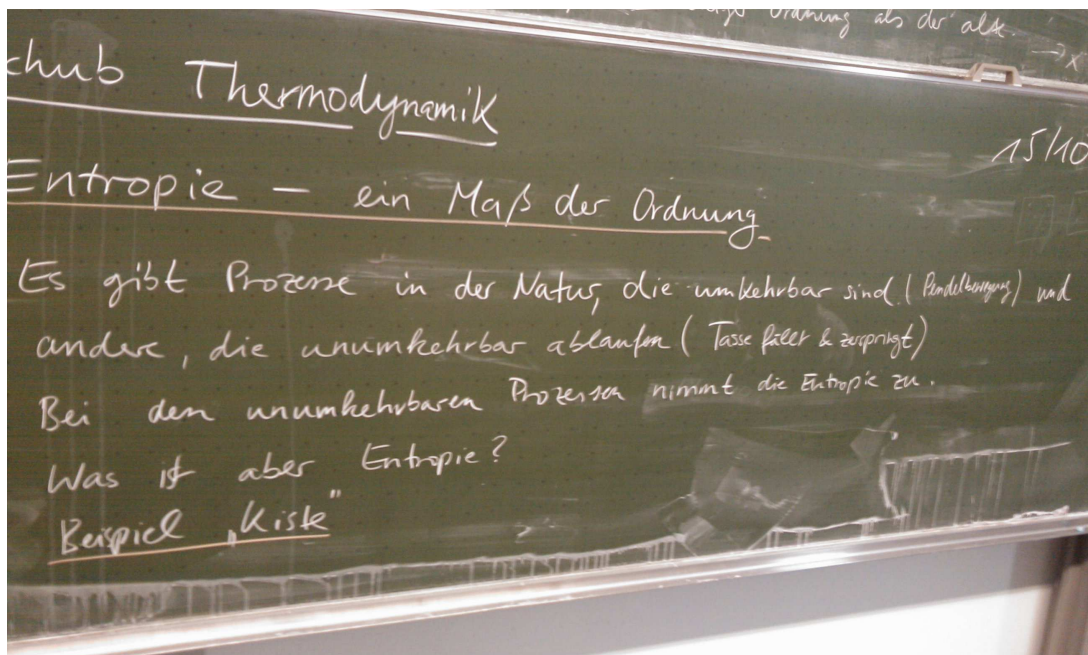 Ordnung als der alte.
→ x
chub Thermodynamik
15/10
Entropie – ein Maß der Ordnung
Es gibt Prozesse in der Natur, die umkehrbar sind (Pendelbewegung) und
andere, die unumkehrbar ablaufen (Tasse fällt & zerspringt)
Bei den unumkehrbaren Prozessen nimmt die Entropie zu.
Was ist aber Entropie?
Beispiel „Kiste"